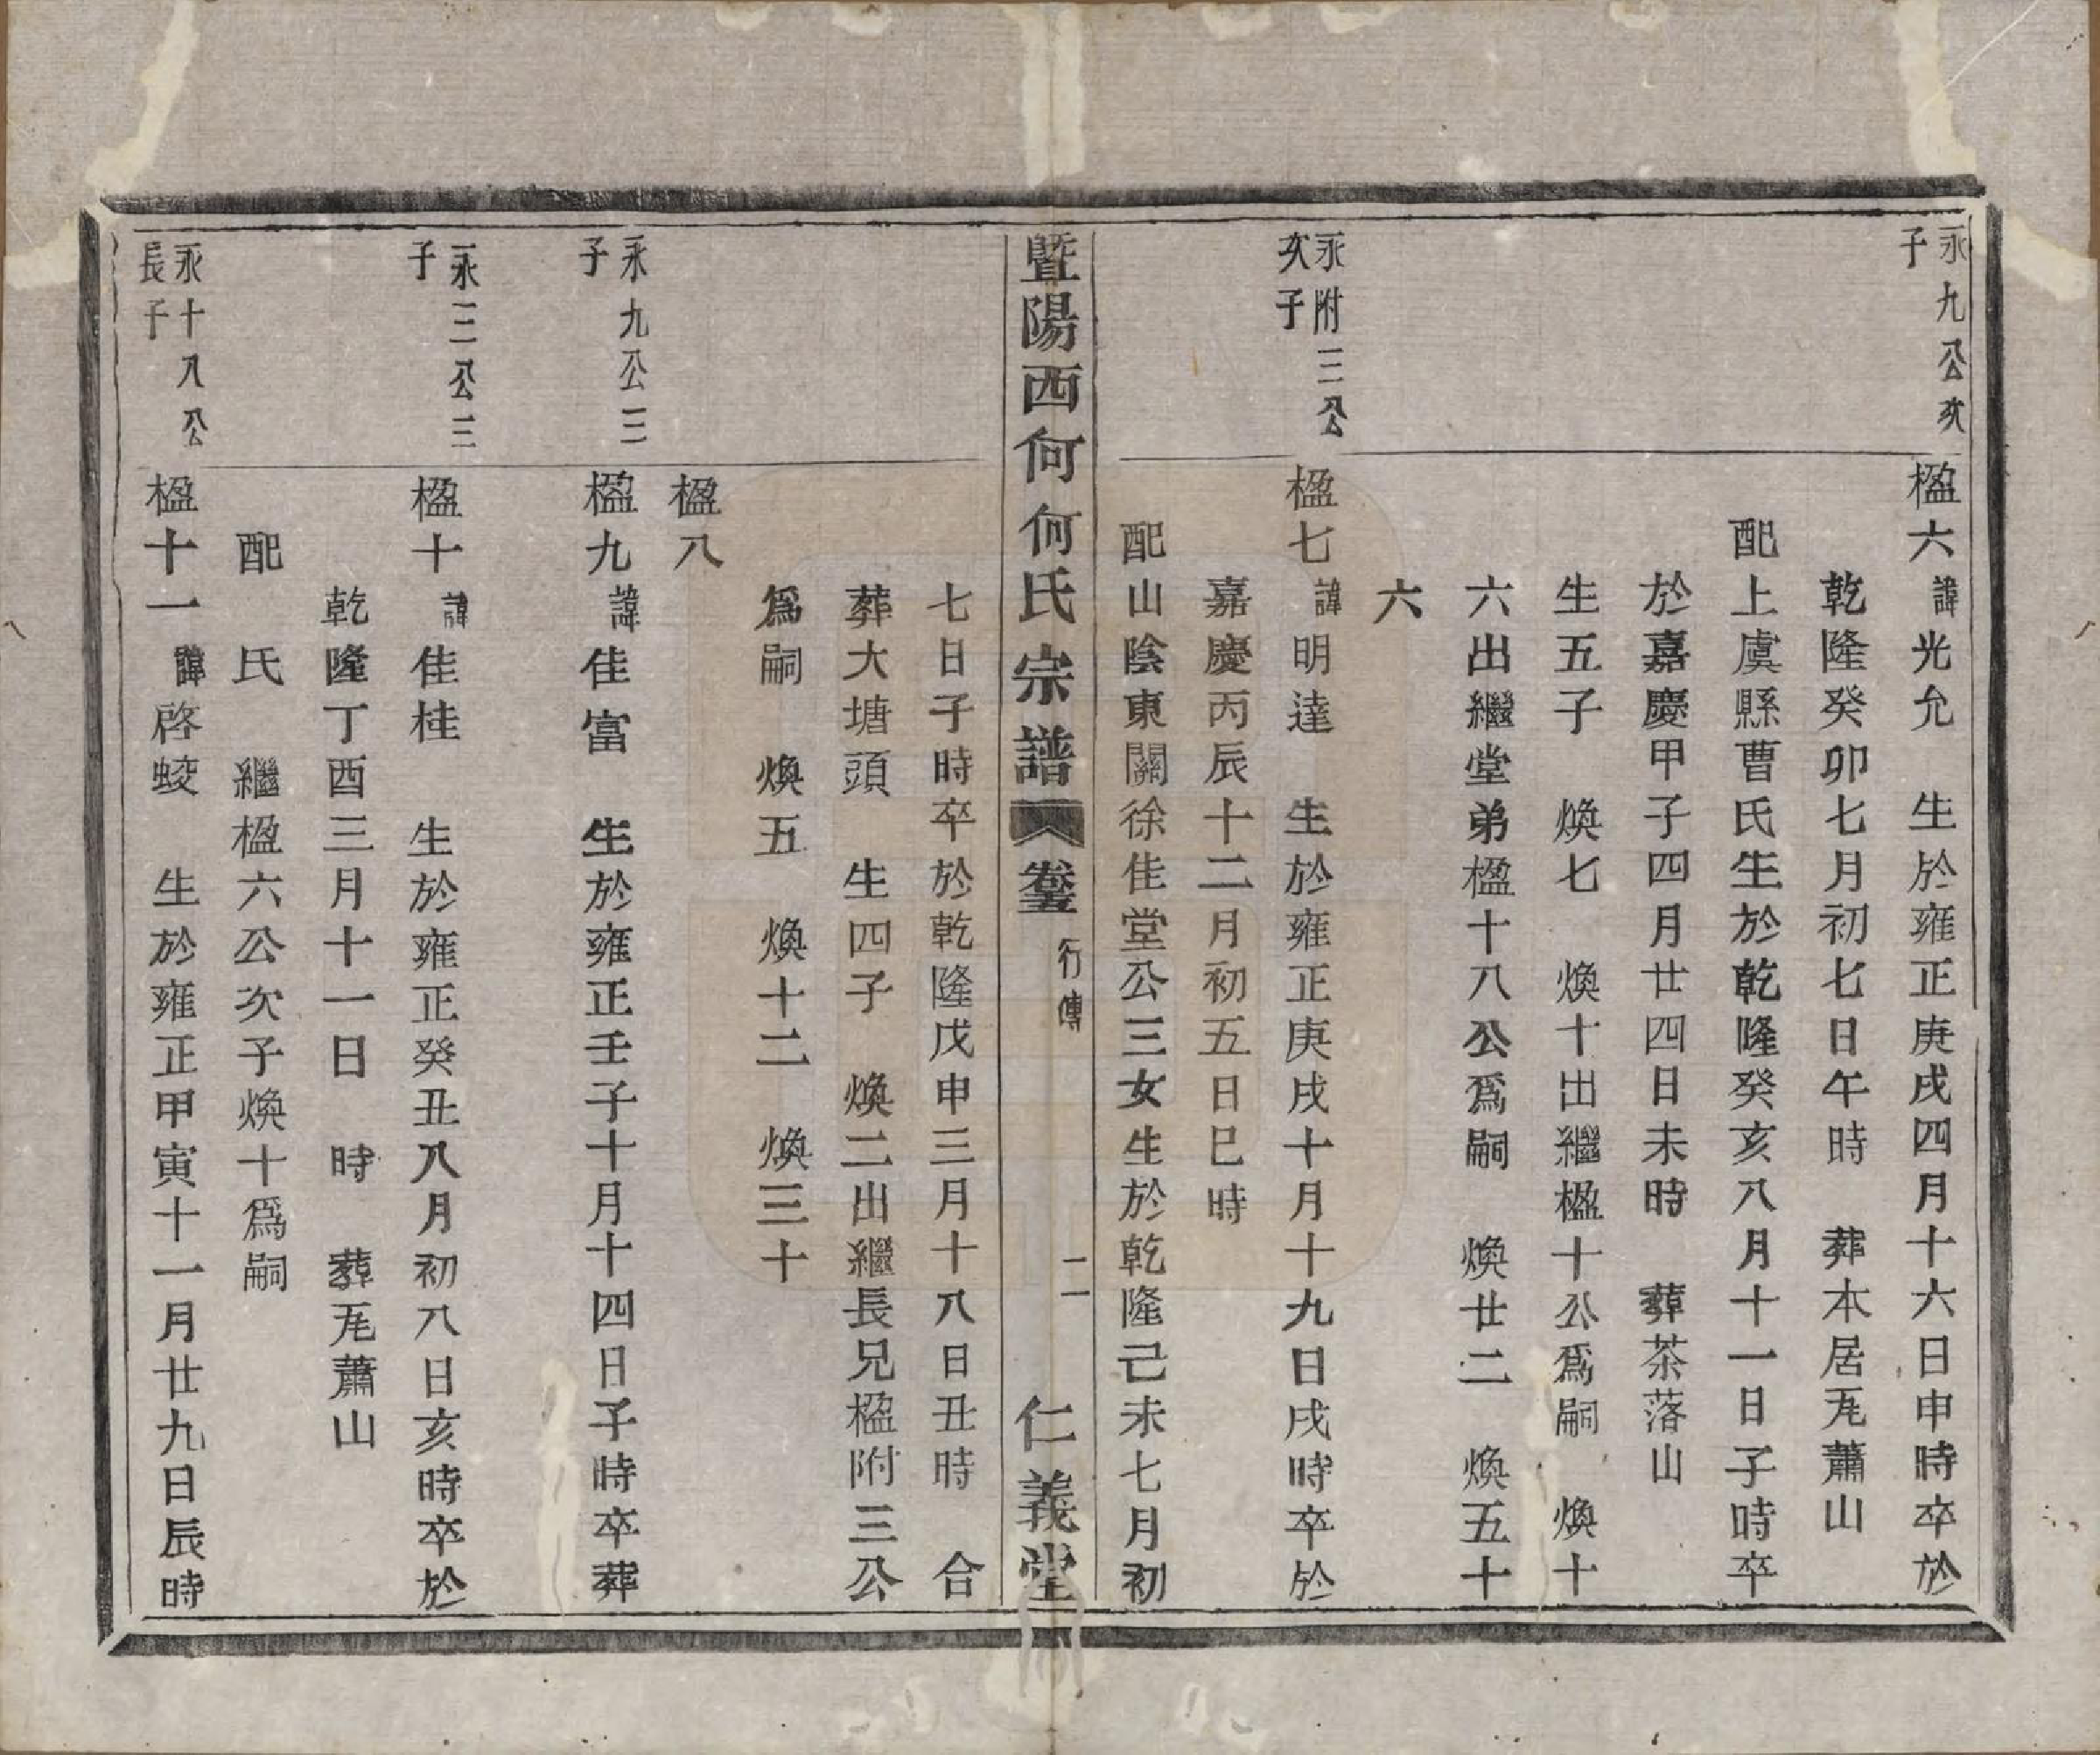 永九公次
子
楹六諱光允　生於雍正庚戌四月十六日申時卒於
乾隆癸卯七月初七日午時　葬本居厖蕭山
配上虞縣曹氏生於乾隆癸亥八月十一日子時卒
於嘉慶甲子四月廿四日未時　葬茶落山
生五子　煥七　煥十出繼楹十公爲嗣　煥十
六出繼堂弟楹十八公爲嗣　煥廿二　煥五十
六
永附三公
次子
楹七諱明達　生於雍正庚戌十月十九日戌時卒於
嘉慶丙辰十二月初五日巳時
配山陰東關徐佳堂公三女生於乾隆己未七月初
暨陽西何何氏宗譜　卷五　行傳　二　仁義堂
七日子時卒於乾隆戊申三月十八日丑時　合
葬大塘頭　生四子　煥二出繼長兄楹附三公
爲嗣　煥五　煥十二　煥三十
楹八
永九公三
子
楹九諱佳富　生於雍正壬子十月十四日子時卒葬
永二公三
子
楹十諱佳桂　生於雍正癸丑八月初八日亥時卒於
乾隆丁酉三月十一日　時　葬厖蕭山
配　氏　繼楹六公次子煥十爲嗣
永十八公
長子
楹十一諱啓蛟　生於雍正甲寅十一月廿九日辰時